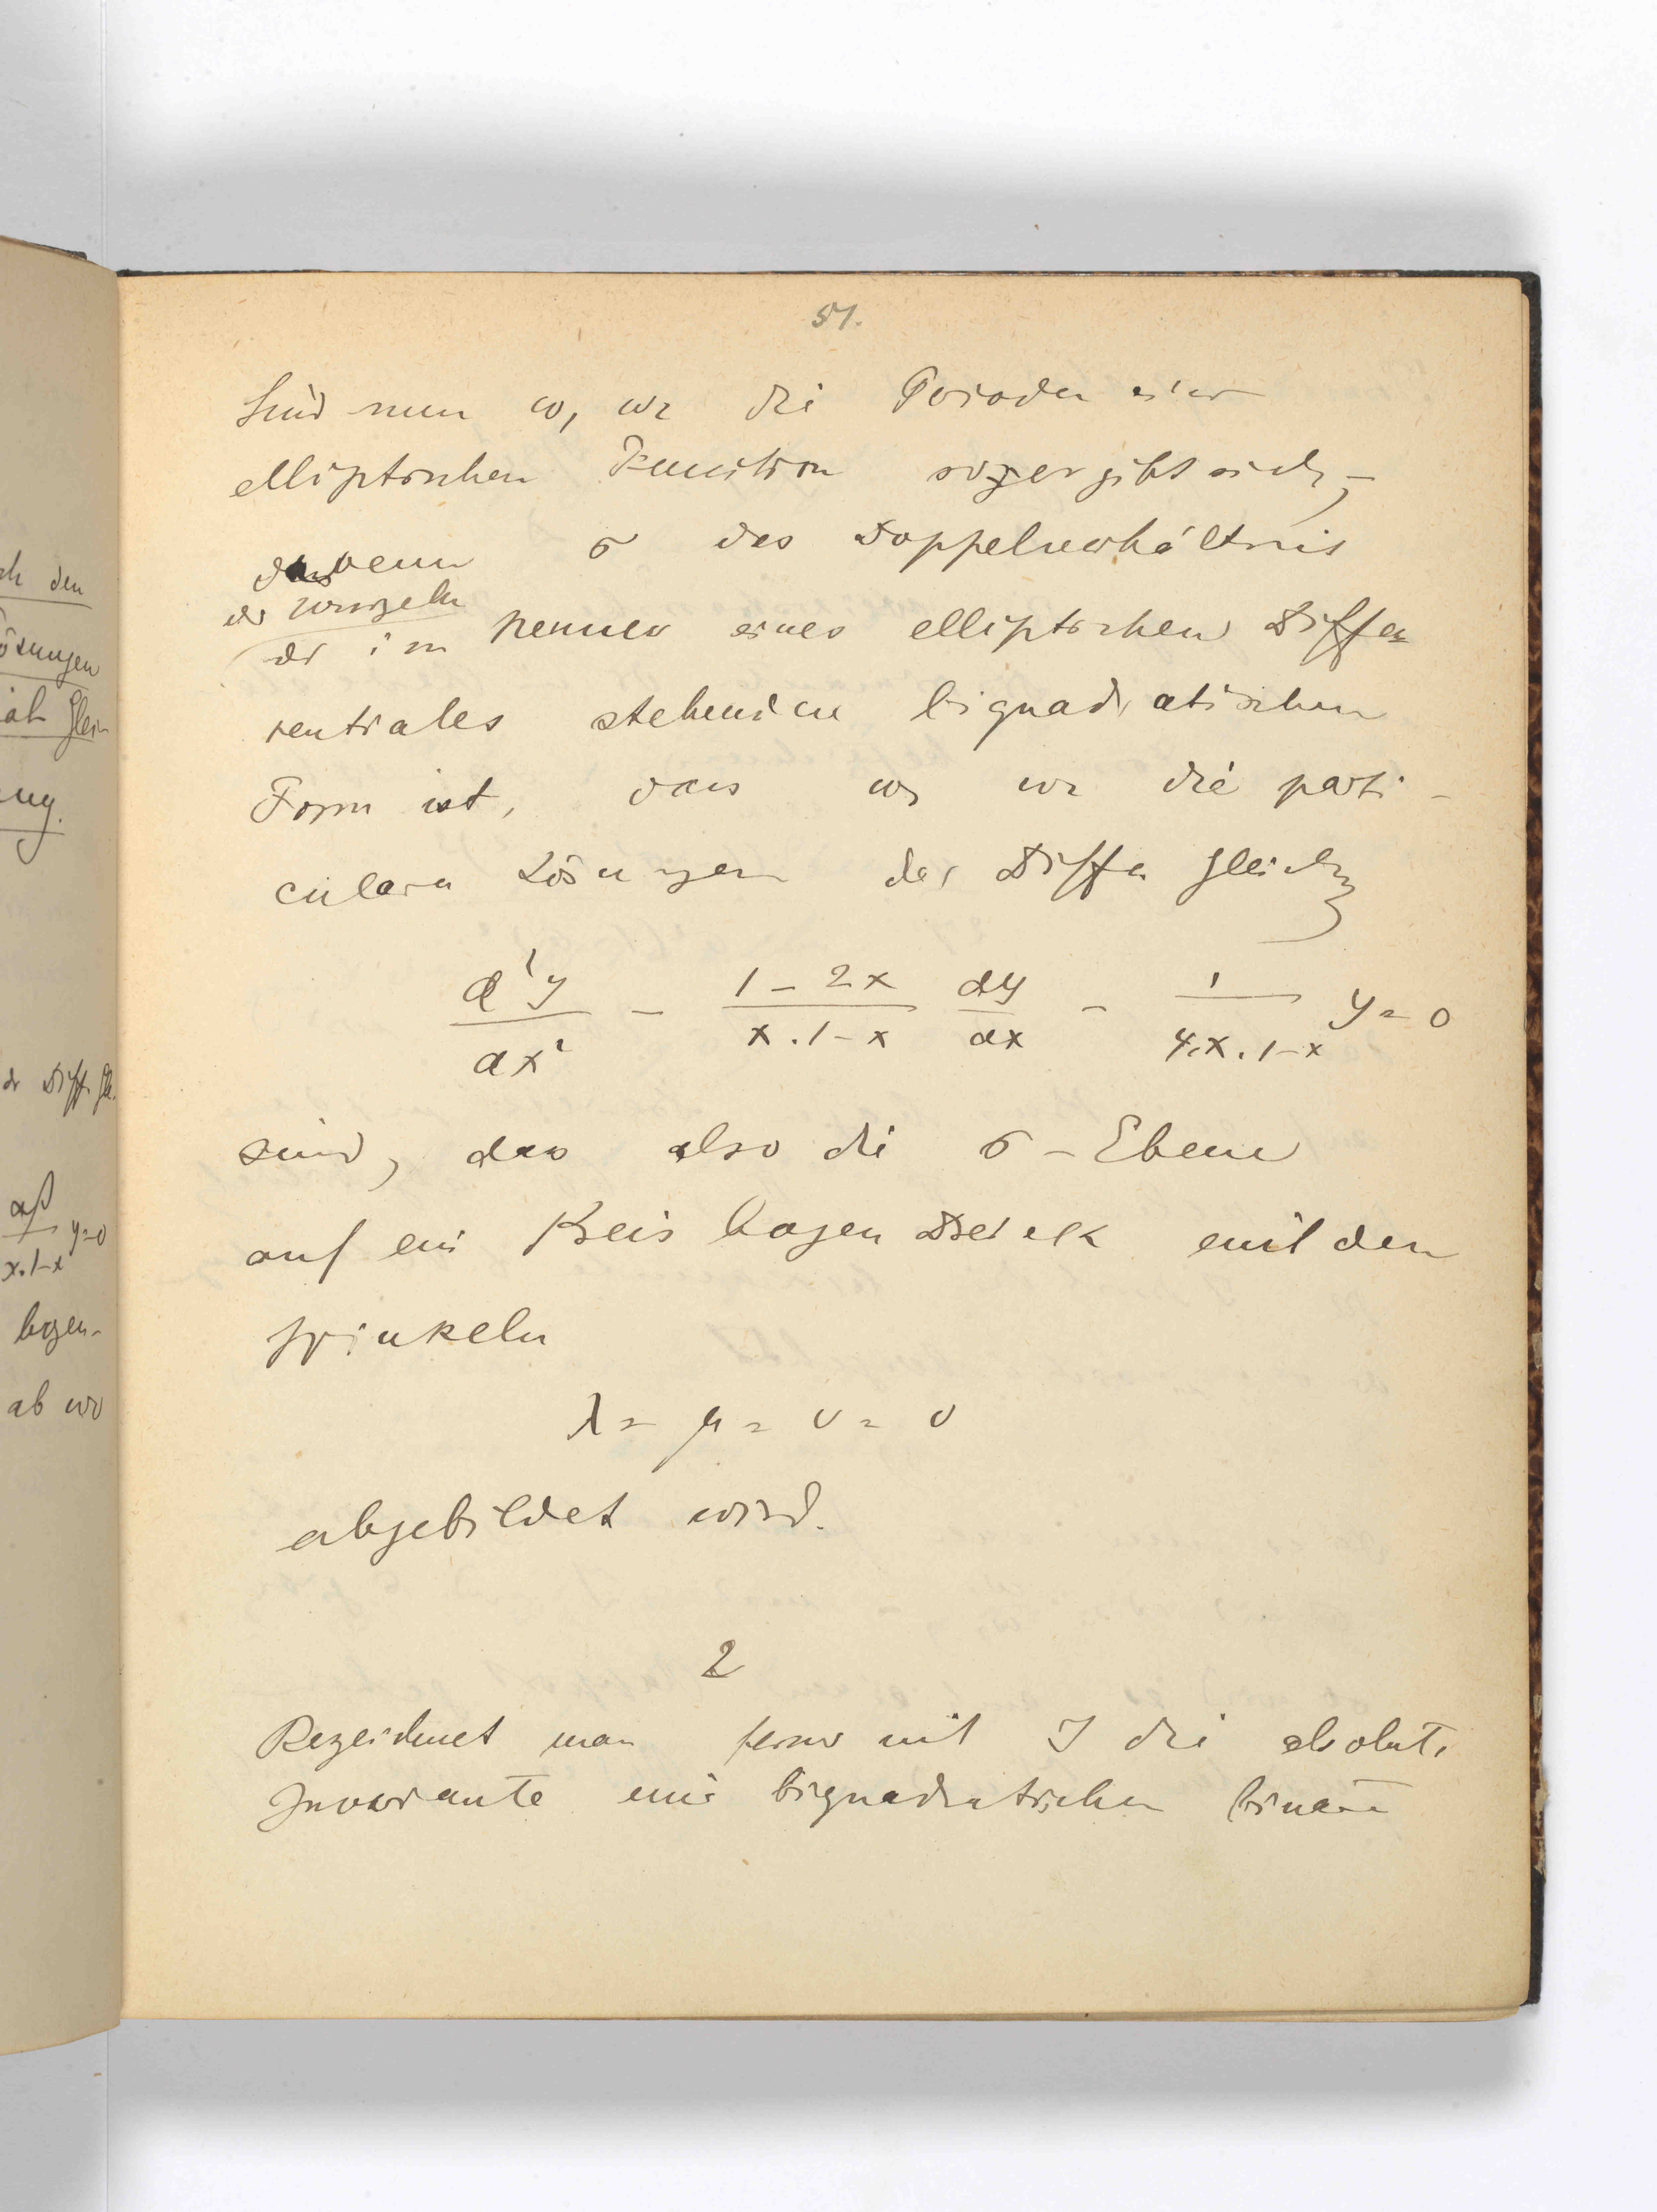 51.
Sind nun ω₁ ω₂ die Perioden einer
elliptischen Function so ergibt sich,
dass wenn σ das Doppelverhältnis
der Wurzeln
der im Nenner eines elliptischen Diffe
rentiales stehenden biquadratischen
Form ist, dass ω₁ ω₂ die parti-
culären Lösungen der Diffe gleichg
d²y/dx² - 1-2x/x.1-x dy/dx - 1/4.x.1-x y=0
sind, das also die σ-Ebene
auf ein Kreisbogen Dreieck mit den
Winkeln
λ = μ = ν = 0
abgebildet wird.
2
Bezeichnet man ferner mit J die absolute
Invariante eine biquadratischen binäre
ch den
ösungen
ial Glei-
ung.
der Diff. Gl.
αβ/x.1-x y=0
bogen-
ab wo